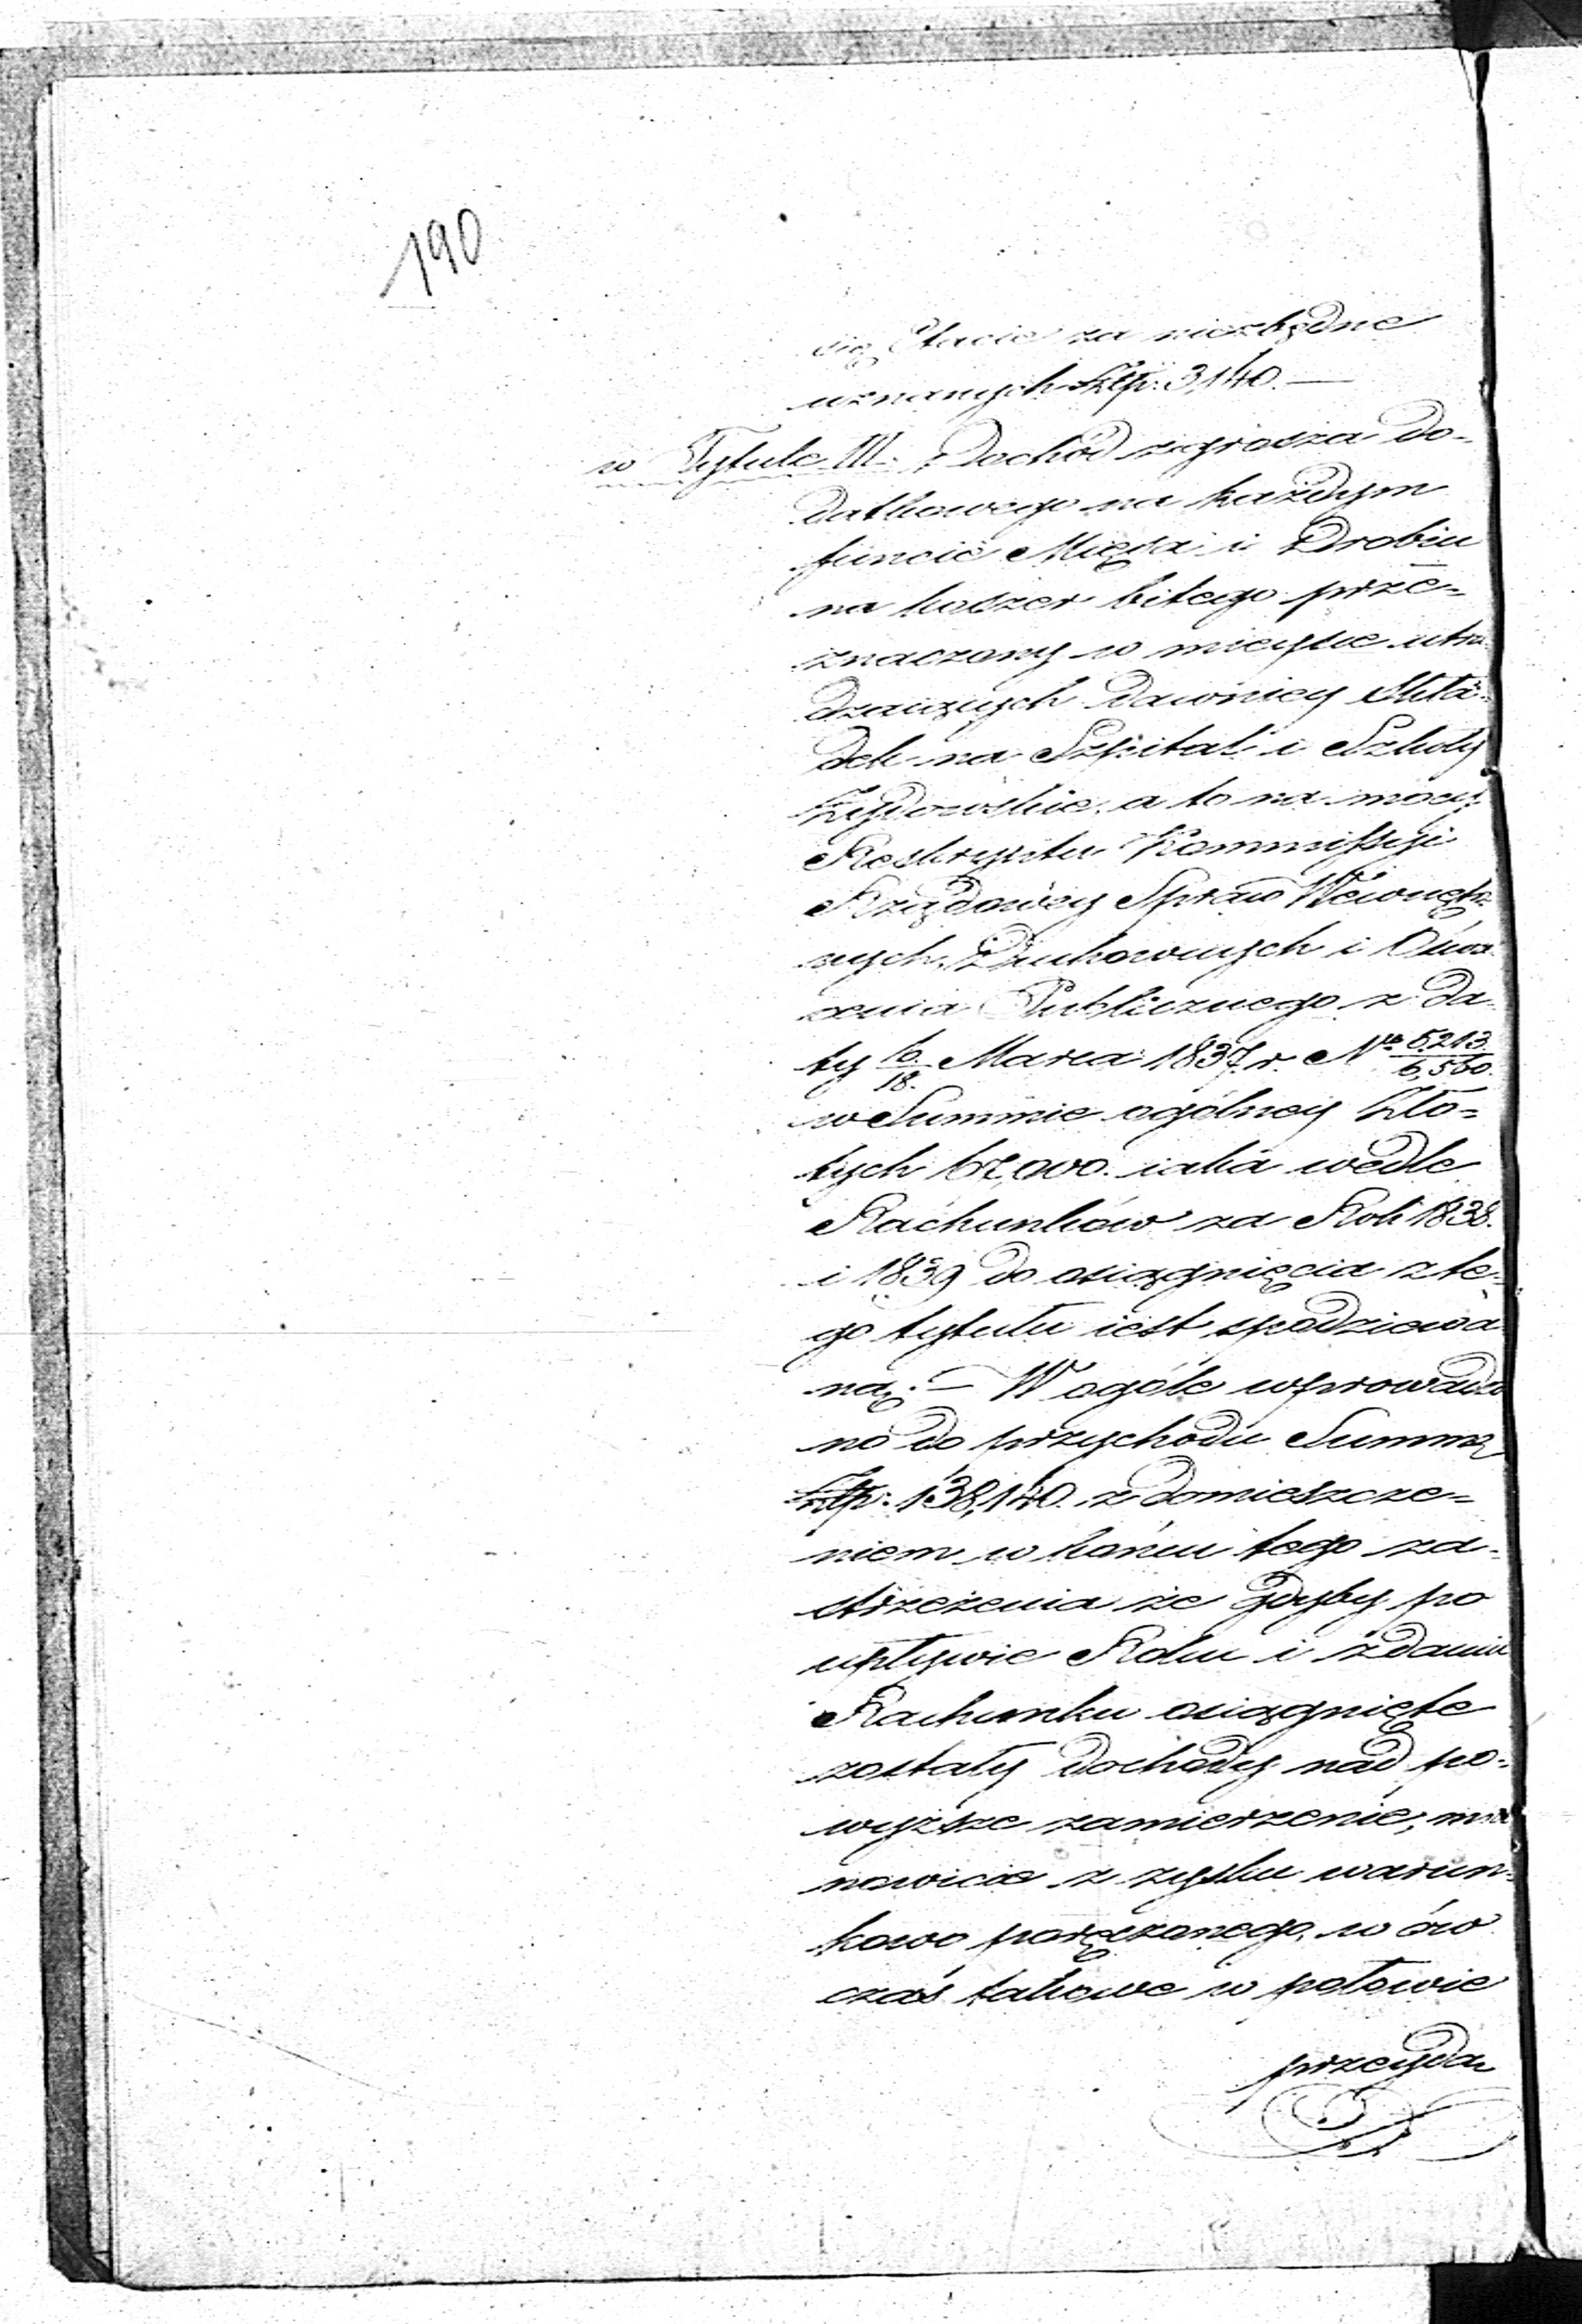 190
się Etacie za niezbędne
uznanych Złp. 3,140.—
w Tytule III. Dochód z grosza do-
datkowego na każdym
funcie Mięsa i Drobiu
na koszer bitego prze-
znaczony w mieysce utru
dzaiących dawniey Skła-
dek na Szpital i Szkoły
Żydowskie, a to na mocy
Reskryptu Kommissyi
Rządowey Spraw Wewnętrz
nych, Duchownych i Oświe
cenia Publicznego z da
ty 6/18. Marca 1837. r. No 5,213/6,560.
w Summie ogólney Zło-
tych 67,000. iaka wedle
Rachunków za Rok 1838.
i 1839 do osiągnięcia z te-
go tytułu iest spodziewa
ną.— W ogóle wprowadzo
no do przychodu Summę
Złp. 138,140. z domieszcze-
niem w końcu tego za-
strzeżenia że gdyby po
upływie Roku i zdaniu
Rachunku osiągnięte
zostały dochody nad po-
wyższe zamierzenie, mia
nowicie z zysku warun-
kowo poręczonego, w ów
czas takowe w połowie
przeyda